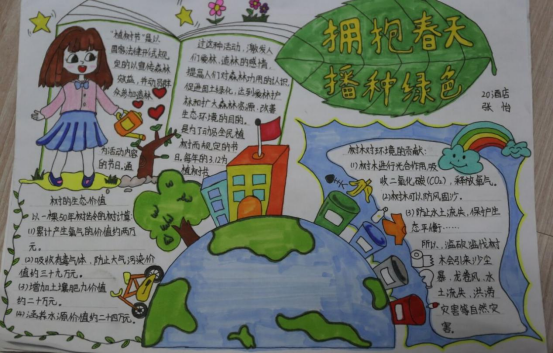 拥抱春天
播种绿色
20酒店
张怡
"植树节"是以
国家法律形式规
定的以宣传森林
效益，并动员群
众参加造林
为活动内容
的节日。通
过这种活动，激发人
们爱林、造林的感情，
提高人们对森林作用的认识，
促进国土绿化，达到爱林护
林和扩大森林资源，改善
生态环境的目的。
是为了动员全民植
树而规定的节
日。每年的3.12为
植树节
树的生态价值
以一棵50年树龄的树计算：
(1)累计产生氧气的价值约两万
元。
(2)吸收有毒气体，防止大气污染价
值约三十九万元。
(3)增加土壤肥力价值
约二十万元。
(4)涵养水源价值约二十四万元。
树木对环境的贡献：
(1)树木进行光合作用，吸
收二氧化碳(CO₂)，释放氧气。
(2)树林可以防风固沙。
(3)防止水土流失，保护生
态平衡……
所以，滥砍滥伐树
木会引来沙尘
暴，龙卷风，水
土流失，洪涝
灾害等自然灾
害。